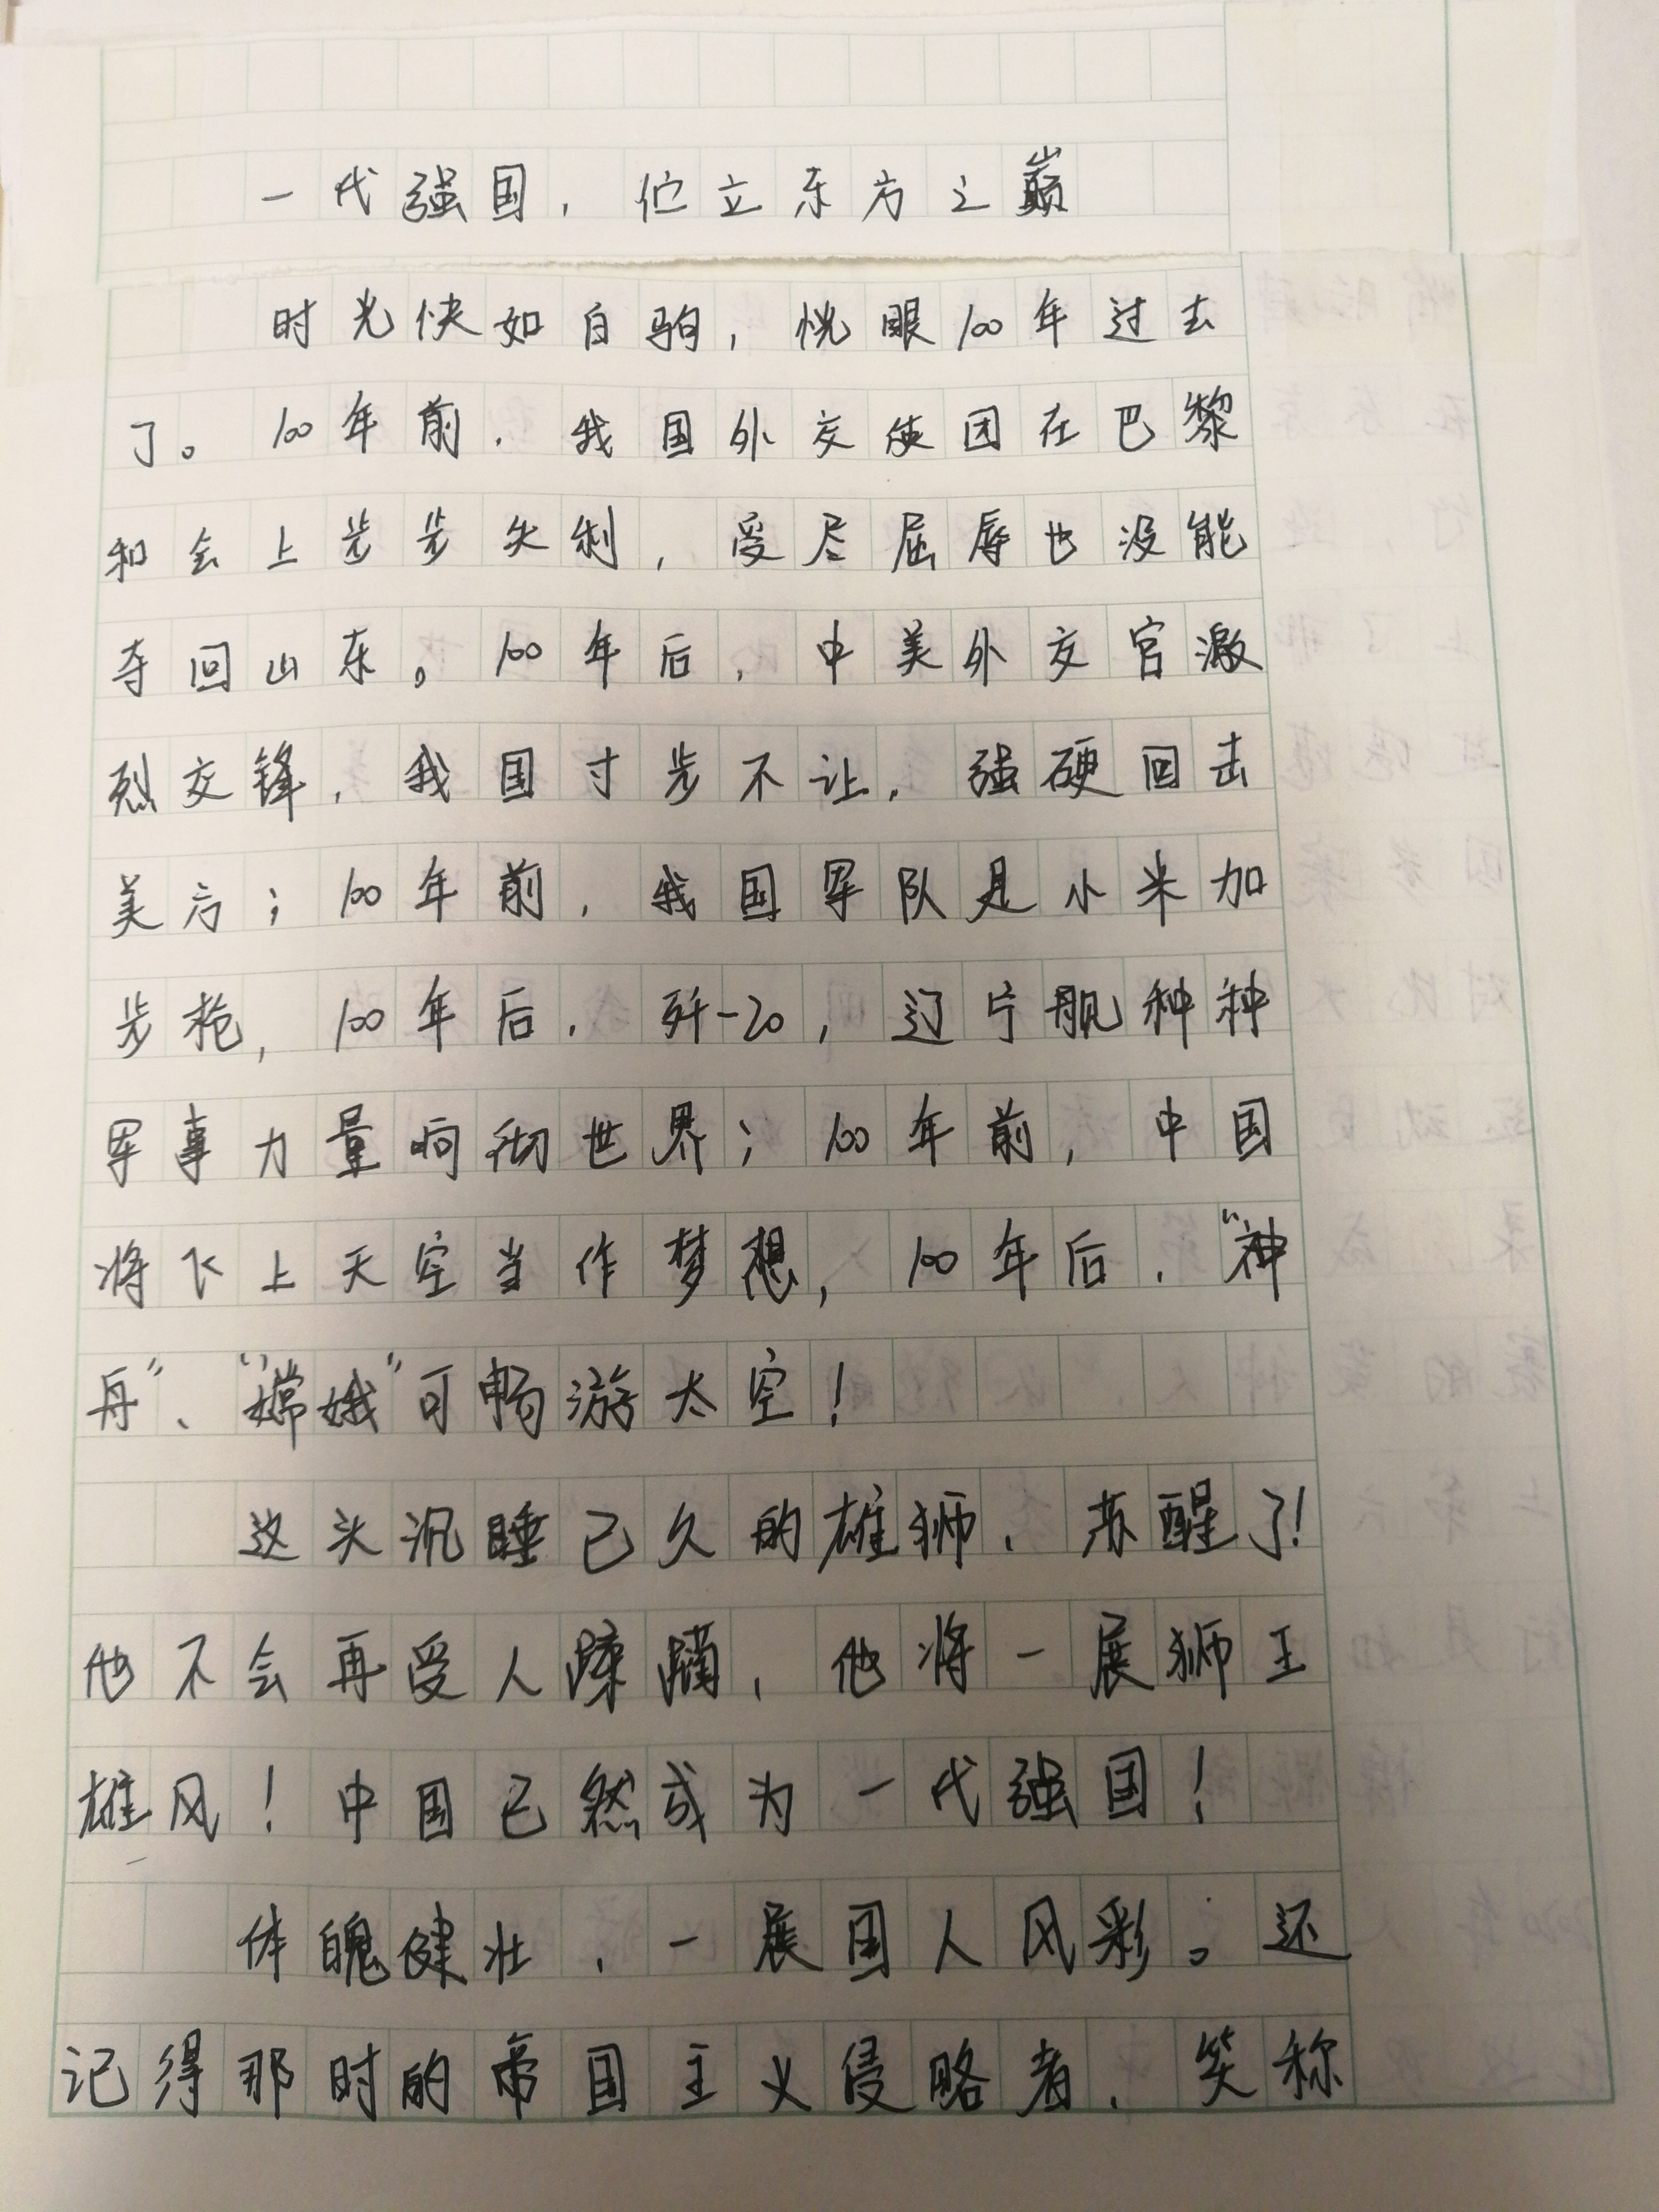 一代强国，伫立东方之巅
时光快如白驹，恍眼100年过去
了。100年前，我国外交使团在巴黎
和会上步步失利，受尽屈辱也没能
夺回山东。100年后，中美外交官激
烈交锋，我国寸步不让，强硬回击
美方；100年前，我国军队是小米加
步枪，100年后，歼-20，辽宁舰种种
军事力量响彻世界；100年前，中国
将飞上天空当作梦想，100年后，“神
舟”、“嫦娥”可畅游太空！
这头沉睡已久的雄狮，苏醒了！
他不会再受人蹂躏，他将一展狮王
雄风！中国已然成为一代强国！
体魄健壮，一展国人风彩。还
记得那时的帝国主义侵略者，笑称